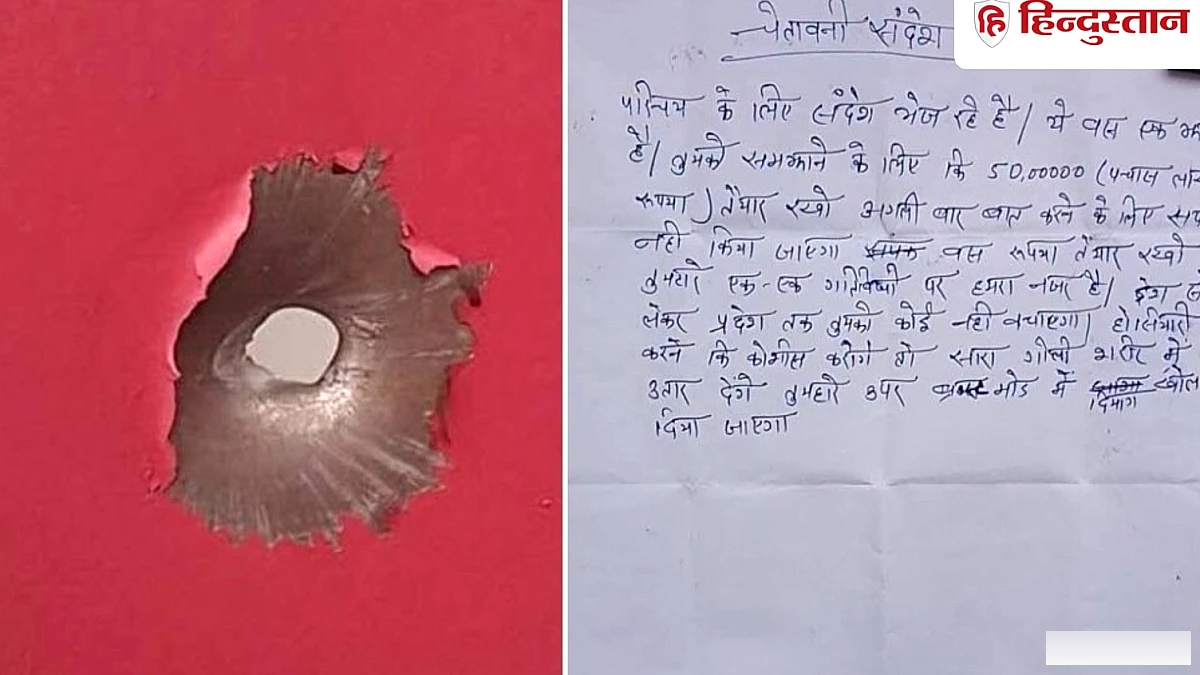 हिन्दुस्तान
चेतावनी संदेश
परिचय के लिए संदेश भेज रहे है। ये बस एक
है। तुमको समझाने के लिए कि 50,00000 (पचास
रूपया) तैयार रखो अगली बार बात करने के लिए
नही किया जाएगा बस रूपया तैयार रखो
तुमहारे एक-एक गतिविधी पर हमरा नजर है।
लेकर प्रदेश तक तुमको कोई नही बचाएगा। होसियारी
करने कि कोसीस करोगे तो सारा गोली शरीर में
उतार देंगे तुमहारे उपर मोड में दिमाग खोल
दिया जाएगा